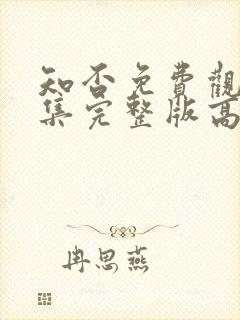 知否免費觀
集完整版高
冉思燕